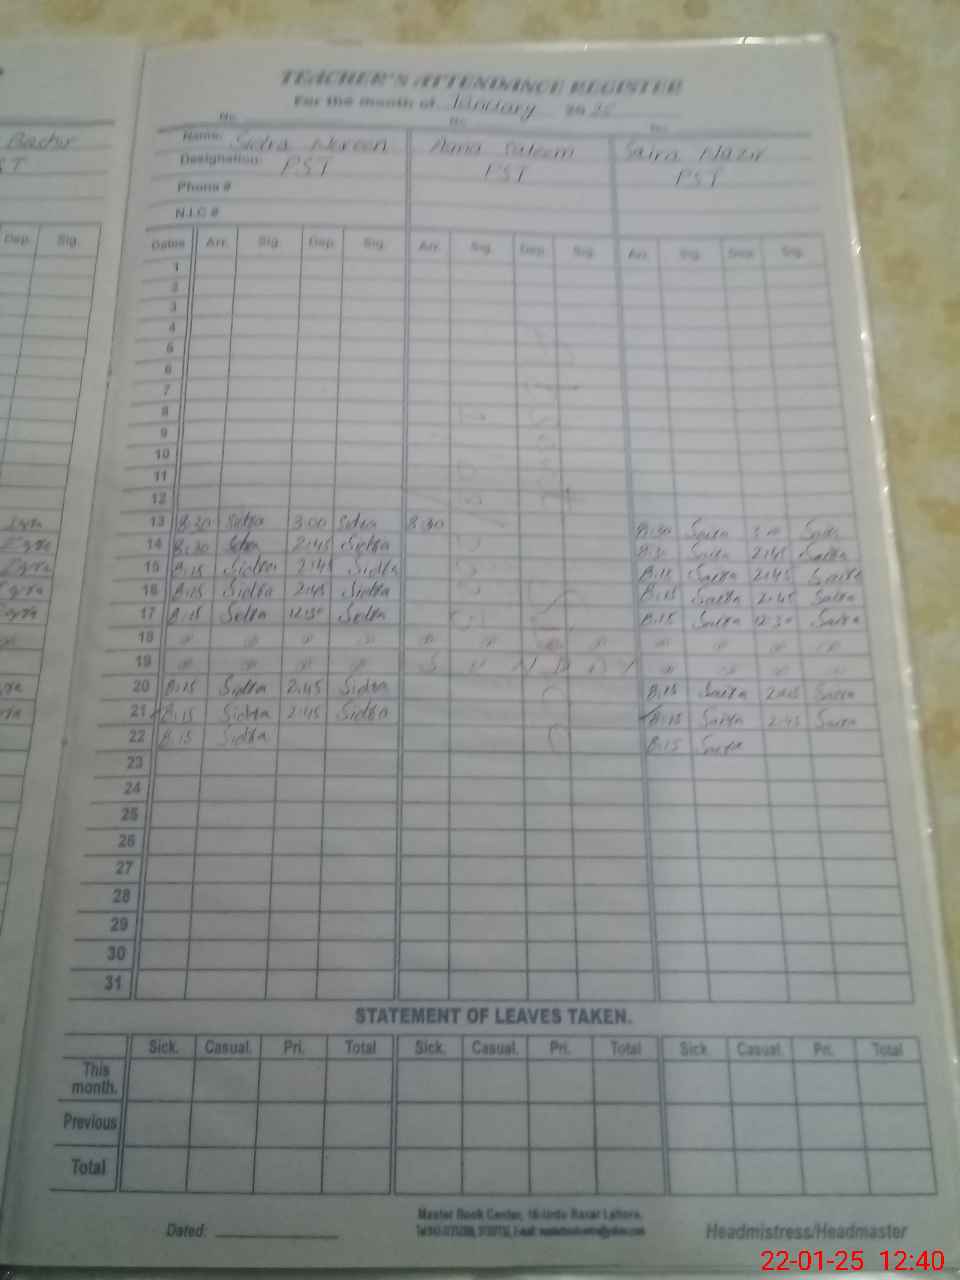 TEACHER'S ATTENDANCE REGISTER
For the month of January 2025
No. No. No.
Name: Sidra Noreen Saleem Saira Nazir
Designation: PST PST PST
Phone #
N.I.C #
Dep. Sig. Dates Arr. Sig. Dep. Sig. Arr. Sig. Dep. Sig. Arr. Sig. Dep. Sig.
1
2
3
4
5
6
7
8
9
10
11
12
13 8:30 Sidra 3:00 Sidra 8:30 8:30 Saira 3:00 Saira
14 8:30 Sidra 2:45 Sidra 8:30 Saira 2:45 Saira
15 8:15 Sidra 2:45 Sidra 8:15 Saira 2:45 Saira
16 8:15 Sidra 2:45 Sidra 8:15 Saira 2:45 Saira
17 8:15 Sidra 12:30 Sidra 8:15 Saira 12:30 Saira
18
19 S U N D A Y
20 8:15 Sidra 2:45 Sidra 8:15 Saira 2:45 Saira
21 8:15 Sidra 2:45 Sidra 8:15 Saira 2:45 Saira
22 8:15 Sidra 8:15 Saira
23
24
25
26
27
28
29
30
31
STATEMENT OF LEAVES TAKEN.
Sick. Casual. Pri. Total Sick. Casual. Pri. Total Sick Casual. Pri. Total
This month.
Previous
Total
Master Book Center, 16-Urdu Bazar Lahore.
Dated: Headmistress/Headmaster
22-01-25 12:40